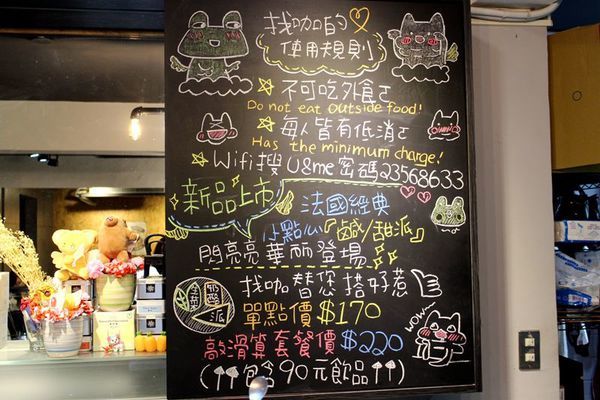 找咖的
使用規則
不可吃外食ㄛ
Do not eat outside food!
每人皆有低消ㄛ
Has the minimum charge!
Wifi搜 U&me 密碼 23568633
新品上市!
法國經典
小點心『鹹/甜派』
閃亮亮華麗登場
找咖替您搭好惹
派
單點價 $170
敲滑算套餐價 $220
(包含90元飲品)
WOW